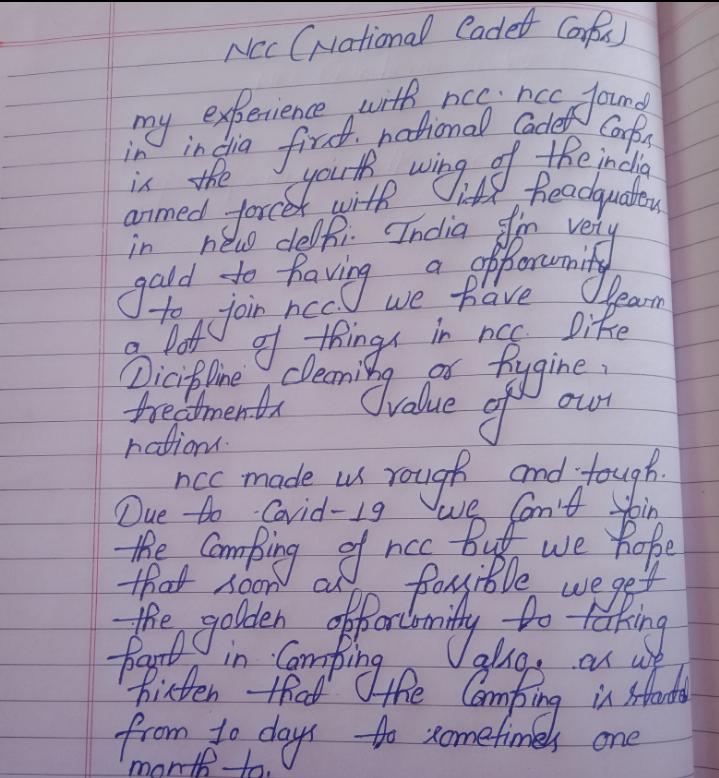 NCC (National Cadet Corps)
my experience with ncc. ncc found
in india first. national Cadet Corps
is the youth wing of the india
armed forces with its headquaters
in new delhi. India I'm very
gald to having a opporunity
to join ncc. we have learn
a lot of things in ncc. like
Dicipline cleaning or hygine,
treatments value of our
nations.
ncc made us rough and tough.
Due to Covid-19 we Can't join
the Camping of ncc but we hope
that soon as possible we get
the golden opporunity to taking
part in Camping also. as we
histen that the Camping is started
from 10 days to sometimes one
month to.